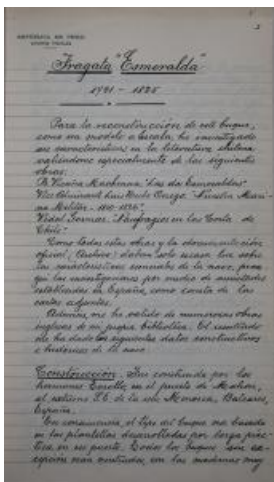 REPUBLICA DE CHILE
Fragata "Esmeralda"
1791 - 1825
Para la reconstrucción de este buque,
como un modelo a escala, he investigado
sus características en la literatura chilena
valiéndome especialmente de las siguientes
obras:
B. Vicuña Mackenna "Las dos Esmeraldas"
Vice Almirant. Luis Uribe Orrego "Nuestra Mari-
na Militar
Vidal Gormaz "Naufragios en las Costas de
Chile"
Como todas estas obras y la documentación
oficial, daban solo escasa luz sobre
las características de la nave, pro-
que las investigaciones por medio de
establecidas en España, como consta de las
cartas adjuntas.
Además, me he valido de numerosas obras
inglesas de mi propia biblioteca. El resultado
me ha dado los siguientes datos constructivos
e históricos de la nave.
Construcción. Fue construida por los
hermanos en el puerto de Mahon,
al extremo de la isla Menorca, Baleares,
España.
En consecuencia, el tipo del buque era basado
en las desarrolladas por larga prác-
tica en ese puerto. Todos los buques sin ex-
cepción eran construidos con las maderas muy